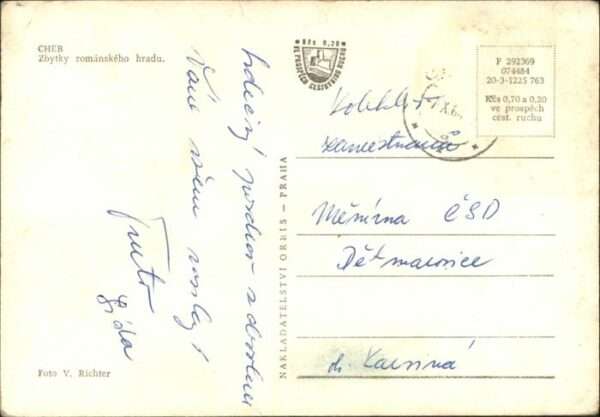 CHEB
Zbytky románského hradu.
Kčs 0,20
VE PROSPĚCH CESTOVNÍHO RUCHU
P 292369
074484
20-3-1225 763
Kčs 0,70 a 0,20
ve prospěch
cest. ruchu
Srdečný pozdrav z dovolené
Vám všem posílají
Lída
NAKLADATELSTVÍ ORBIS – PRAHA
zaměstnanců
Měnírna ČSD
Dětmarovice
o. Karviná
Foto V. Richter